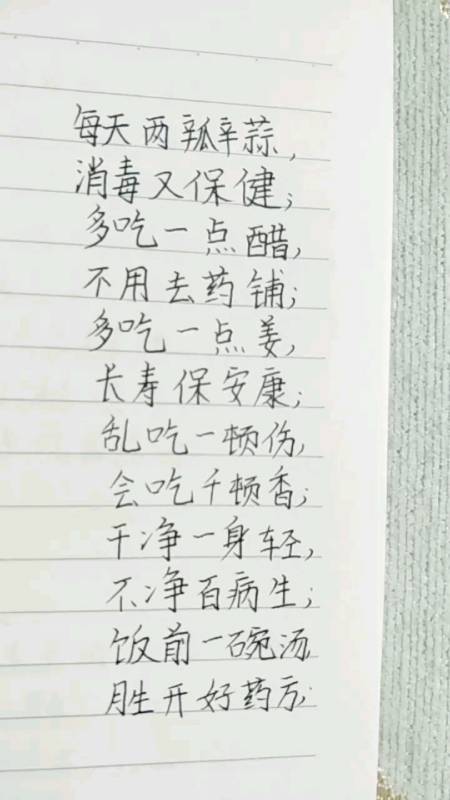 每天两瓣蒜，
消毒又保健；
多吃一点醋，
不用去药铺；
多吃一点姜，
长寿保安康；
乱吃一顿伤，
会吃千顿香；
干净一身轻，
不净百病生；
饭前一碗汤
胜开好药方；